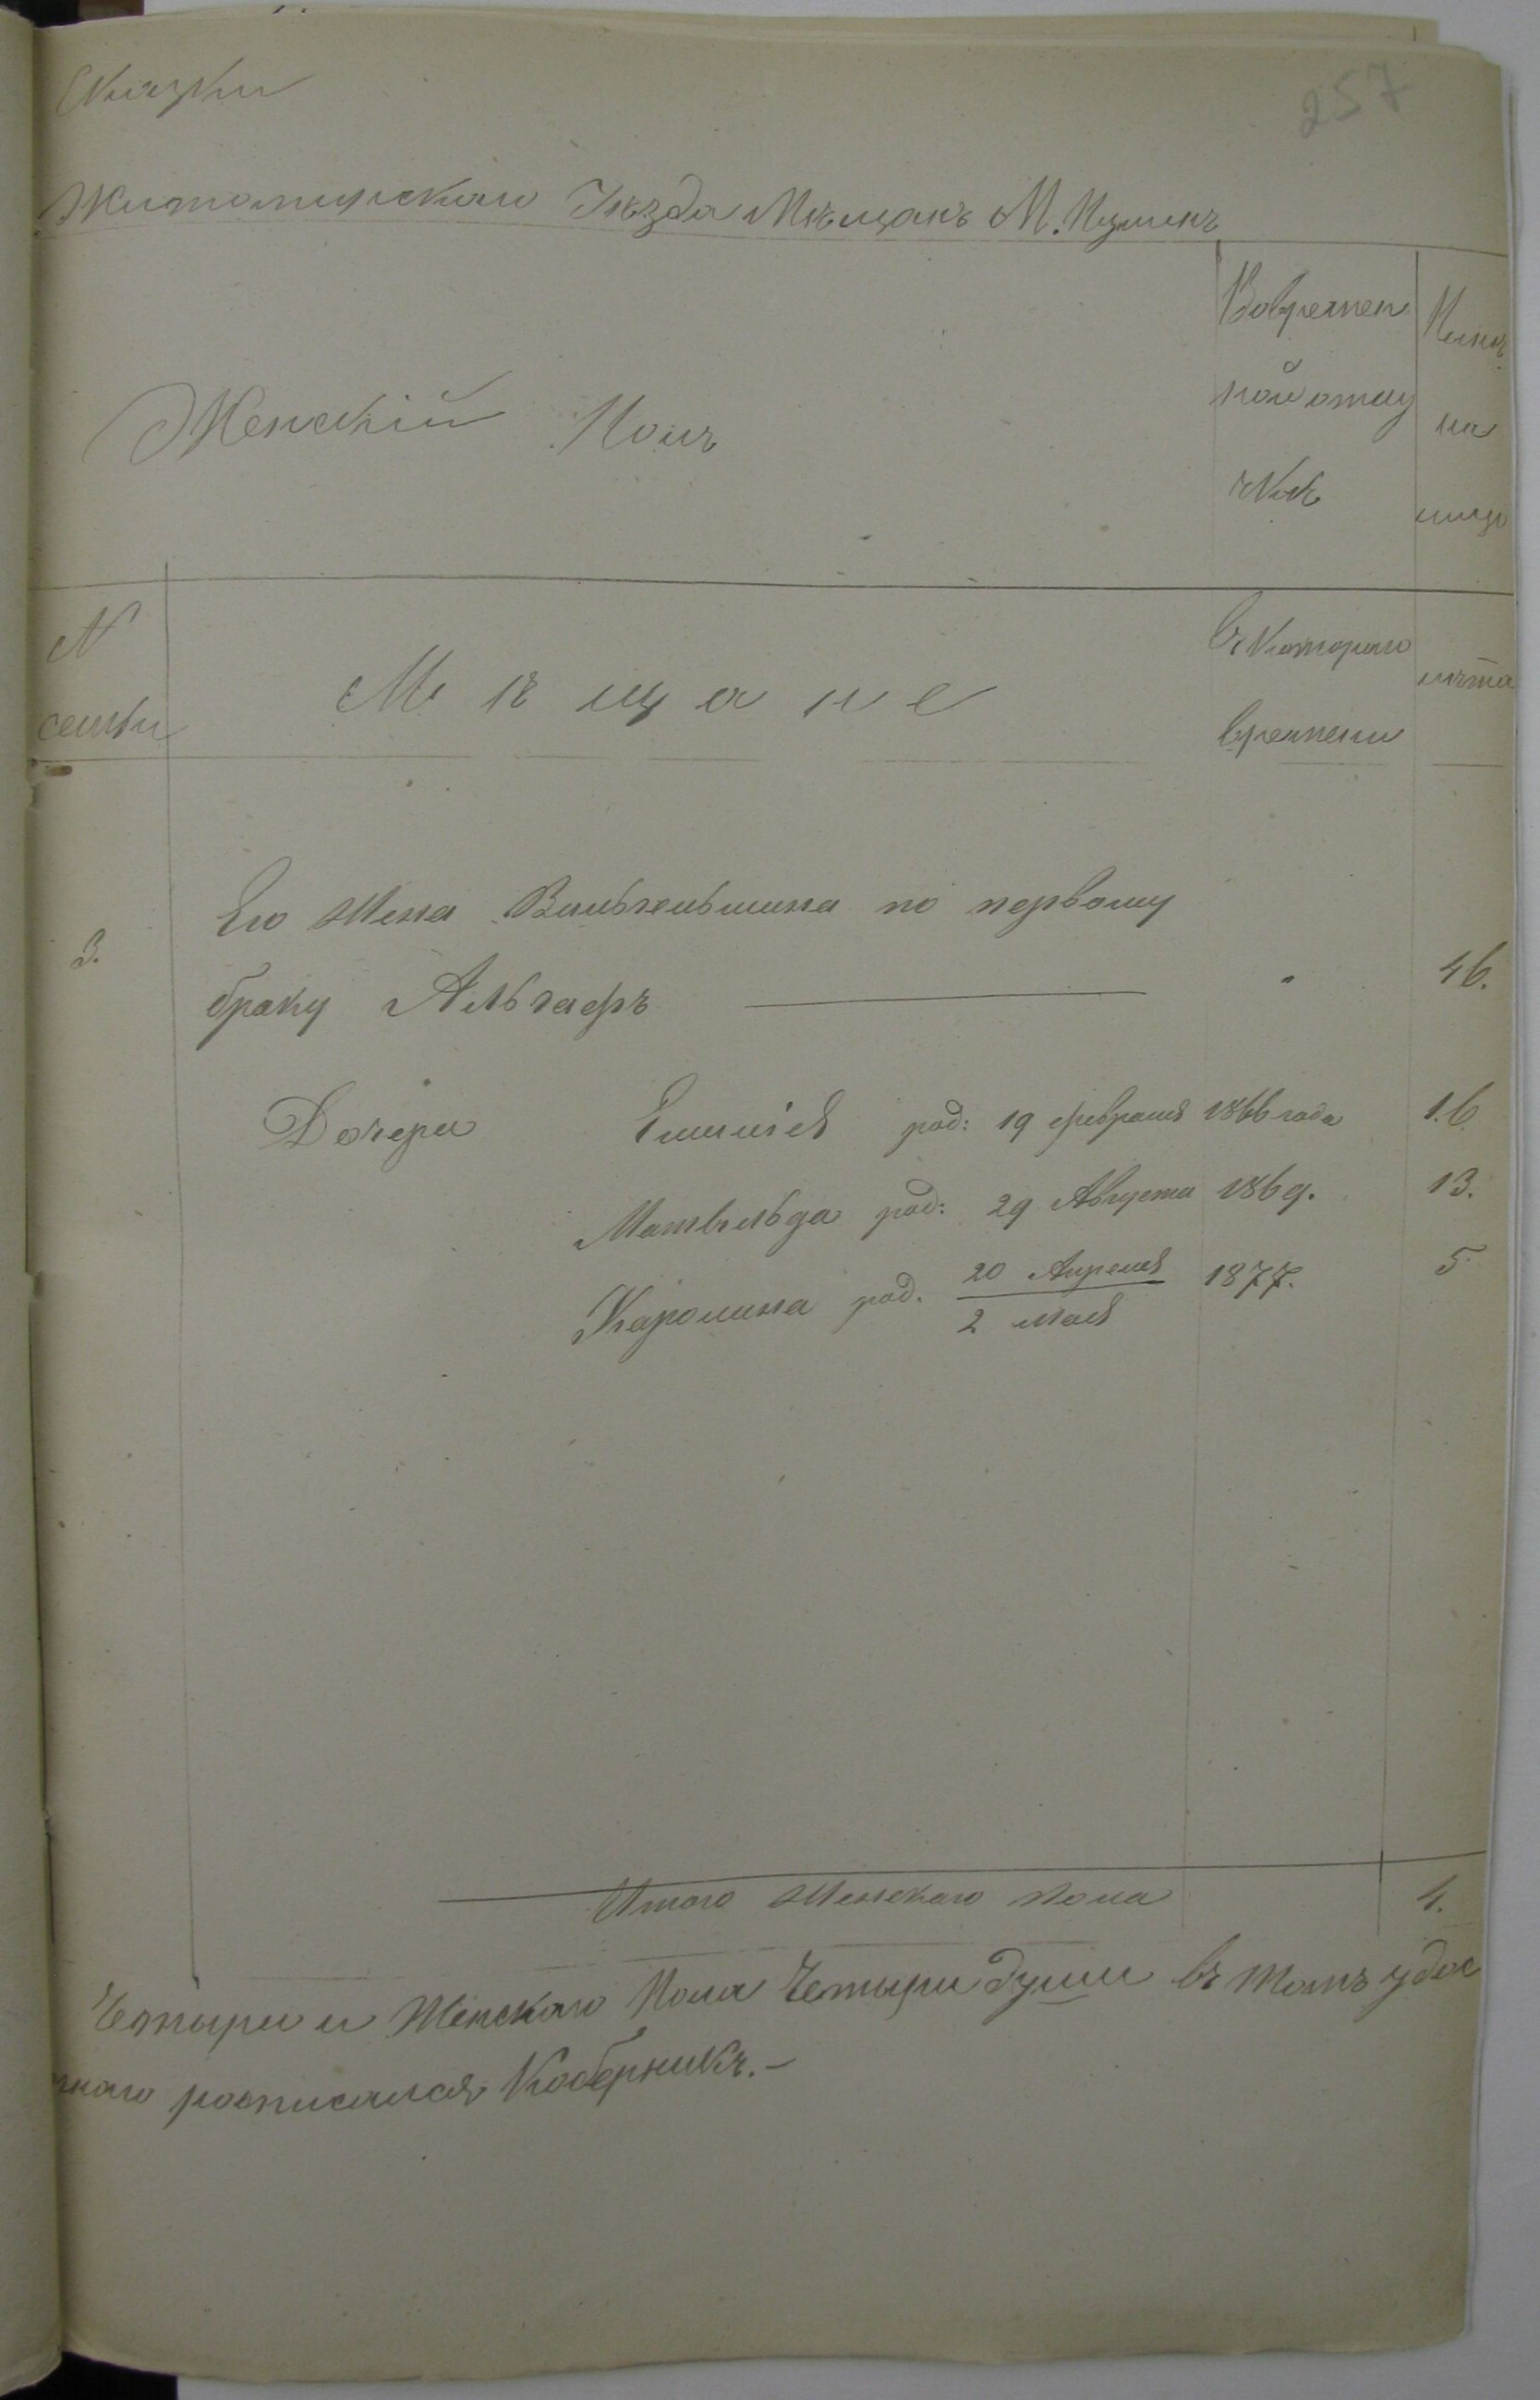 Сказки
257
Житомирскаго Уѣзда Мѣщанъ М.
Женскій Полъ
Вовремен
ной отлу
чкѣ
Нынѣ
на
лицо
N
семьи
Мѣщане
Съ котораго
времени
лѣта
3.
Его Жена Вильгельмина по первому
браку Альгафъ
"
46.
Дочери Емилія род: 19 февраля 1866 года 16
Матвильда род: 29 Августа 1869. 13.
Каролина род. 20 Апреля / 2 мая 1877. 5
Итого Женскаго пола 4.
Четыри и Женскаго Пола Четыри души въ томъ удос
росписался Коберникъ.-